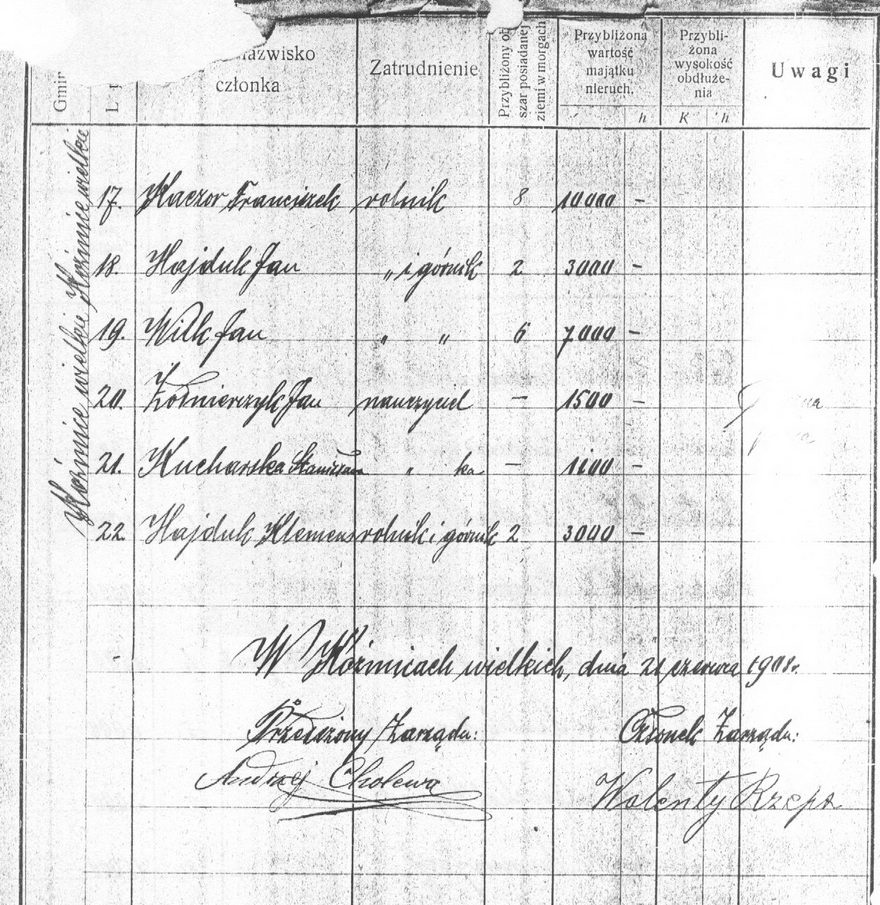 Gmin
L. p.
nazwisko członka
Zatrudnienie
Przybliżony ob szar posiadanej ziemi w morgach
Przybliżona wartość majątku nieruch.
h
Przybli- żona wysokość obdłuże- nia
K h
Uwagi
Koźmice wielkie Koźmice wielkie
17. Kaczor Franciszek rolnik 8 10000 -
18. Hajduk Jan " i górnik 2 3000 -
19. Wilk Jan " " 6 7000 -
20. Żołnierczyk Jan nauczyciel - 1500 -
21. Kucharska " ka - 1000 -
22. Hajduk Klemens rolnik i górnik 2 3000 -
W Koźmicach wielkich, dnia 21 czerwca 1908r.
Przełożony Zarządu: Członek Zarządu:
Andrzej Cholewa Walenty Rzepa